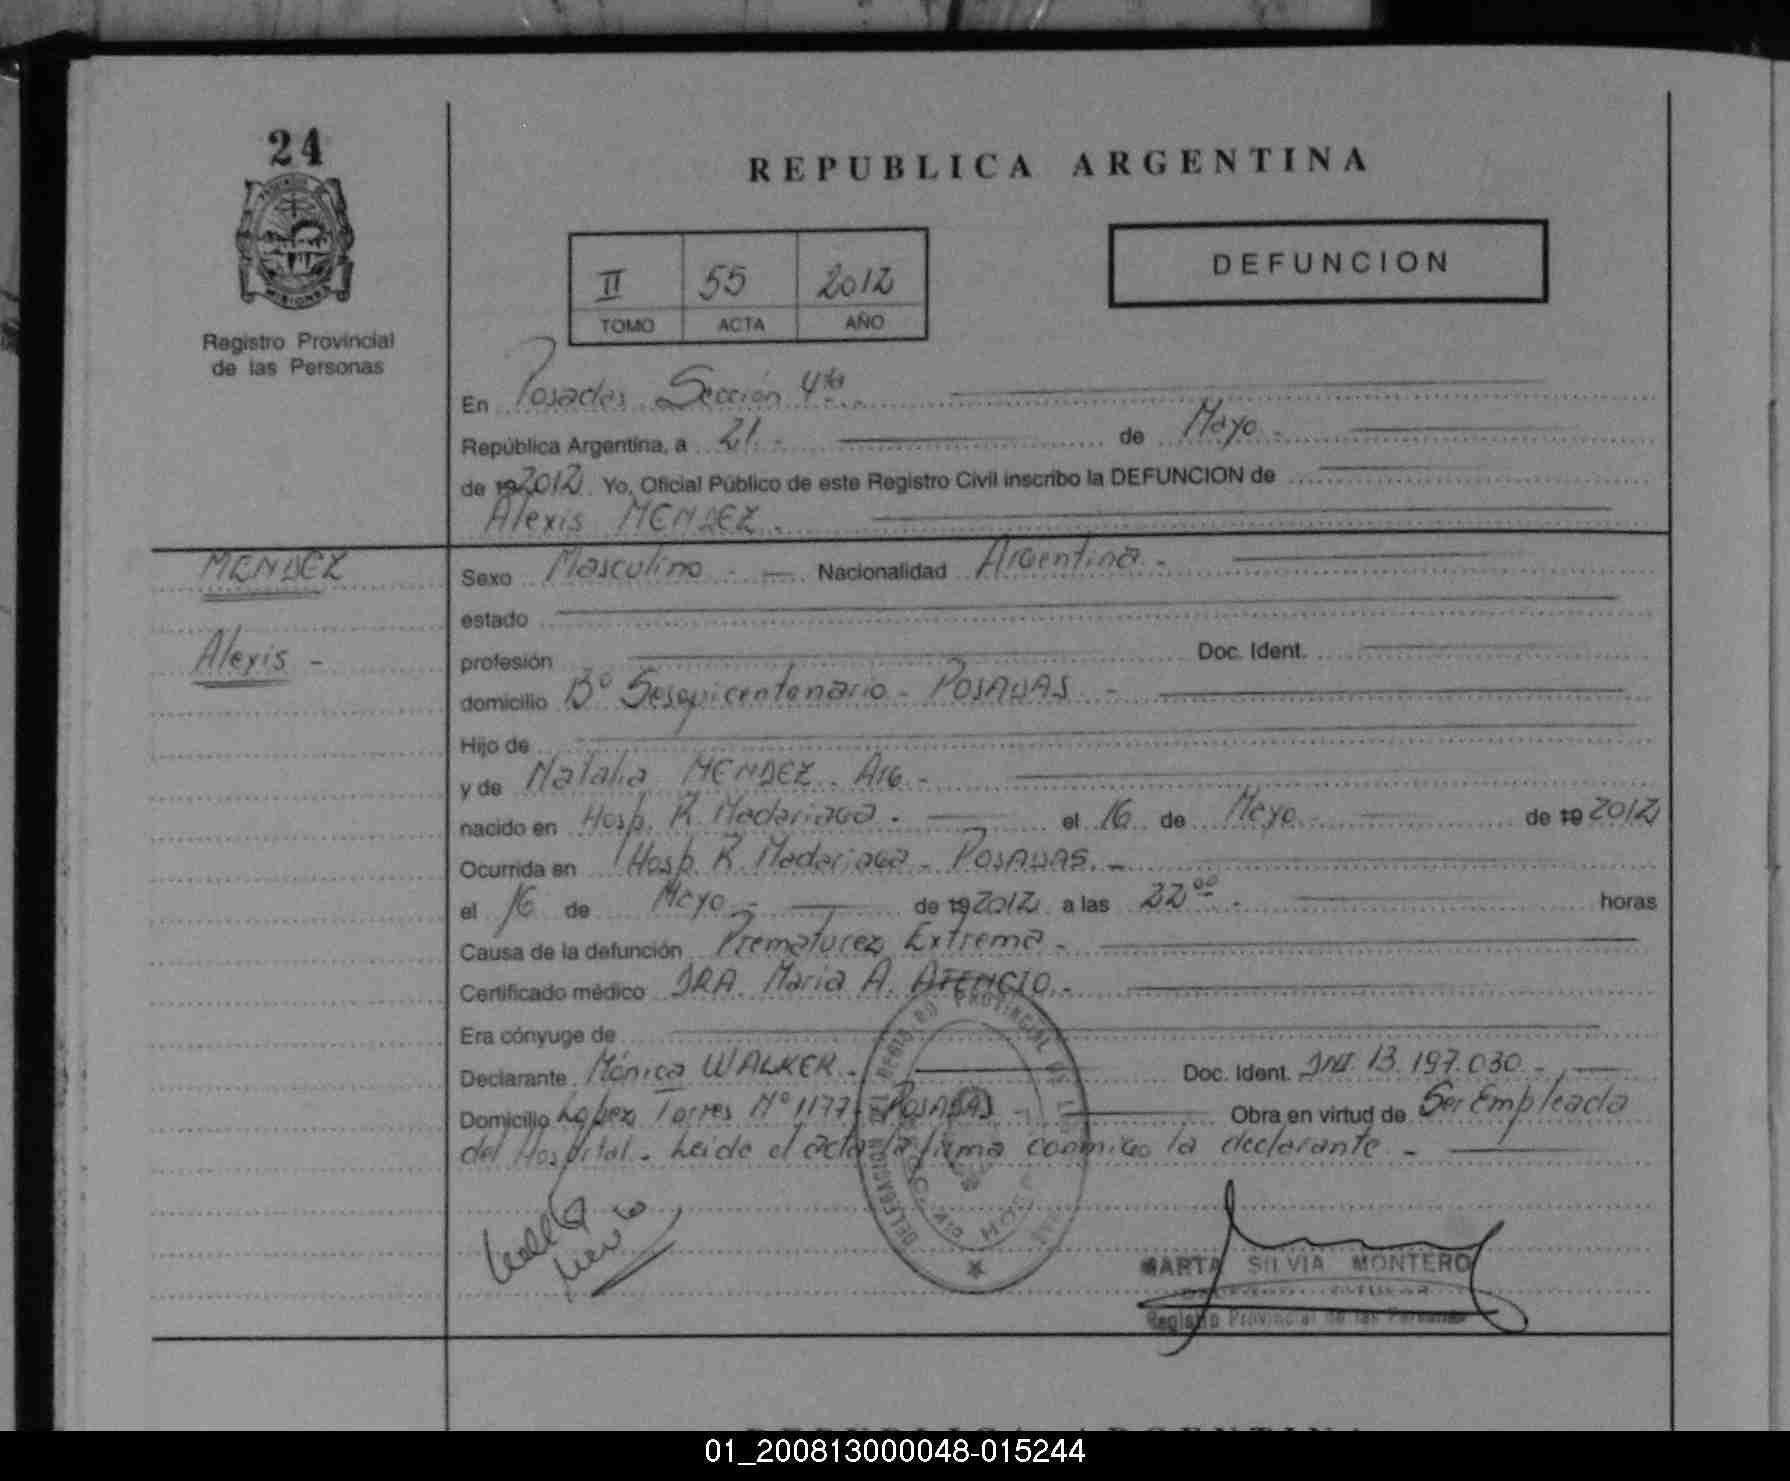 24
REPUBLICA ARGENTINA
DEFUNCION
II 55 2012
TOMO ACTA AÑO
MISIONES
Registro Provincial
de las Personas
En Posadas Sección 4ta
República Argentina, a 21.- de Mayo -
de 192012 Yo, Oficial Público de este Registro Civil inscribo la DEFUNCION de
Alexis MENDEZ.
MENDEZ
Alexis -
Sexo Masculino - Nacionalidad Argentina -
estado
profesión Doc. Ident.
domicilio B° Sesquicentenario - POSADAS -
Hijo de
y de Natalia MENDEZ. Arg.-
nacido en Hosp. R. Madariaga. el 16 de Mayo de 19 2012
Ocurrida en Hosp. R. Madariaga - POSADAS. -
el 16 de Mayo - de 192012 a las 22 00 - horas
Causa de la defunción Prematurez Extrema -
Certificado médico DRA. María A. ATENCIO.-
Era cónyuge de
Declarante Mónica WALKER - Doc. Ident. DNI 13.197.030 -
Domicilio Lopez Torres N° 1177- POSADAS - Obra en virtud de Ser Empleada
del Hospital. Leida el acta la firma conmigo la declarante -
DELEGACION DEL REGISTRO PROVINCIAL DE LAS
MARTA SILVIA MONTERO
Registro Provincial de las Personas
REPUBLICA ARGENTINA
01_200813000048-015244